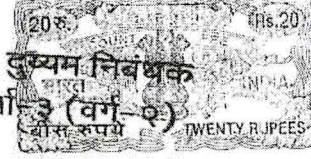 20रु. Rs.20
दुय्यम निबंधक
भारत INDIA
र्ग-३ (वर्ग-२)
बीस रुपये TWENTY RUPEES